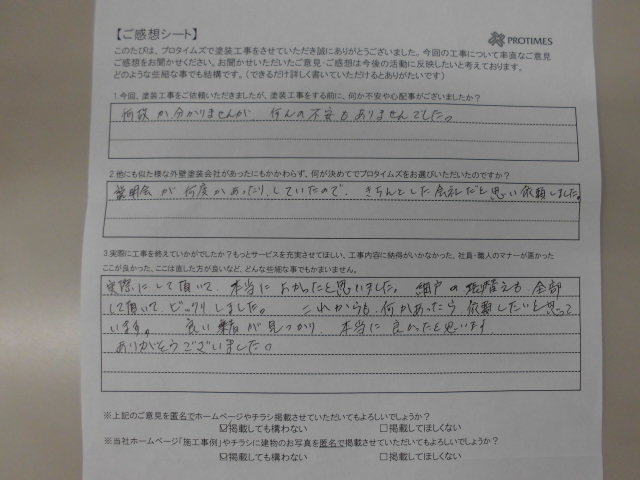 【ご感想シート】
PROTIMES
このたびは、プロタイムズで塗装工事をさせていただき誠にありがとうございました。今回の工事について率直なご意見
ご感想をお聞かせください。お聞かせいただいたご意見・ご感想は今後の活動に反映したいと考えております。
どのような些細な事でも結構です。（できるだけ詳しく書いていただけるとありがたいです）
1.今回、塗装工事をご依頼いただきましたが、塗装工事をする前に、何か不安や心配事がございましたか？
何故か分かりませんが 何んの不安もありませんでした。
2.他にも似た様な外壁塗装会社があったにもかかわらず、何が決めてでプロタイムズをお選びいただいたのですか？
説明会が何度かあったり、していたので、きちんとした会社だと思い依頼しました。
3.実際に工事を終えていかがでしたか？もっとサービスを充実させてほしい、工事内容に納得がいかなかった、社員・職人のマナーが悪かった
ここが良かった、ここは直した方が良いなど、どんな些細な事でもかまいません。
実際にして頂いて 本当によかったと思いました。網戸の張替えも全部
して頂いて、ビックリしました。これからも何かあったら依頼したいと思って
います。良い業者が見つかり 本当に良かったと思います
ありがとうございました。
※上記のご意見を匿名でホームページやチラシ掲載させていただいてもよろしいでしょうか？
☑掲載しても構わない □掲載してほしくない
※当社ホームページ「施工事例」やチラシに建物のお写真を匿名で掲載させていただいてもよろしいでしょうか？
☑掲載しても構わない □掲載してほしくない